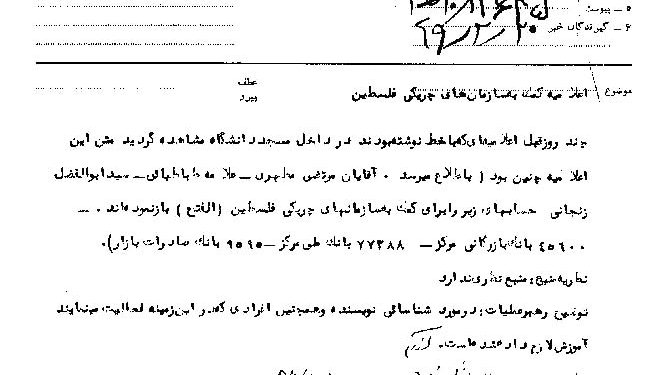 ۵ ـ پیوست
۶ ـ گیرندگان خبر
۴۹/۲/۲۰
عطف
پیرو
موضوع اعلامیه کمک به سازمان‌های چریکی فلسطین
چند روز قبل اعلامیه‌ای که با خط نوشته بودند در داخل مسجد دانشگاه مشاهده گردید متن این
اعلامیه چنین بود ( باطلاع میرسد . آقایان مرتضی مطهری ـ علامه طباطبائی ـ سید ابوالفضل
زنجانی حسابهای زیر را برای کمک به سازمانهای چریکی فلسطین (الفتح) باز نموده‌اند . ـــ
۴۵۶۰۰ بانک بازرگانی مرکز ـ ۷۷۳۸۸ بانک ملی مرکز ـ ۹۵۹۵ بانک صادرات بازار).
نظریه منبع: منبع نظری ندارد
توضیح رهبر عملیات: در مورد شناسائی نویسنده و همچنین افرادی که در این زمینه فعالیت مینمایند
آموزش لازم داده شده است.